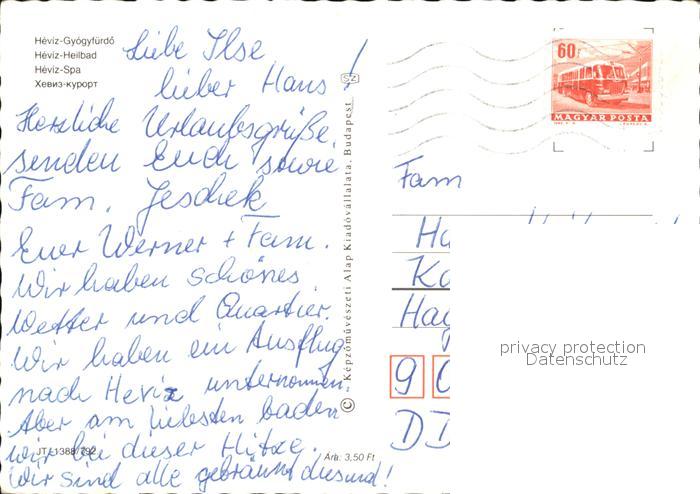 Hévíz-Gyógyfürdő
Hévíz-Heilbad
Hévíz-Spa
Хевиз-курорт
Liebe Ilse
lieber Hans!
Herzliche Urlaubsgrüße
senden Euch sowie
Fam. Jeschek
Euer Werner + Fam.
Wir haben schönes
Wetter und Quartier.
Wir haben ein Ausflug
nach Heviz unternommen.
Aber am liebsten baden
wir bei dieser Hitze.
Wir sind alle gebräunt
JT-1388/792
Ára: 3,50 Ft
© Képzőművészeti Alap Kiadóvállalata, Budapest
SZ
60f
MAGYAR POSTA
Fam
Ha
Ko
Hag
9
DD
privacy protection
Datenschutz